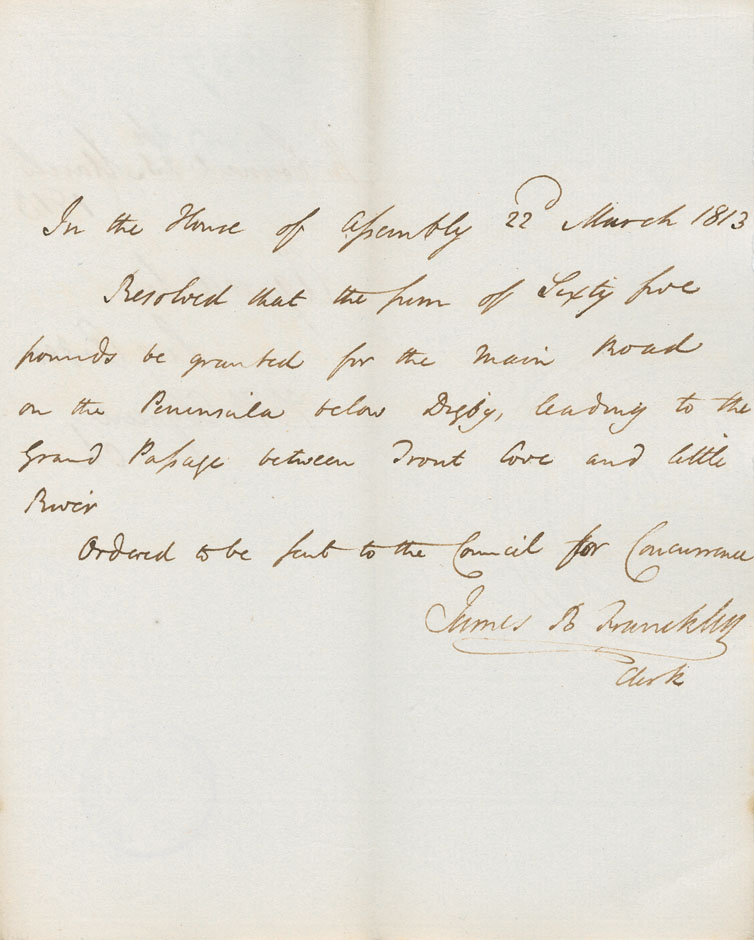 In the House of Assembly 22d March 1813
Resolved that the sum of Sixty five
pounds be granted for the Main Road
on the Peninsula below Digby, leading to the
Grand Passage between Trout Cove and little
River
Ordered to be sent to the Council for Concurrence
James B Francklin
Clerk